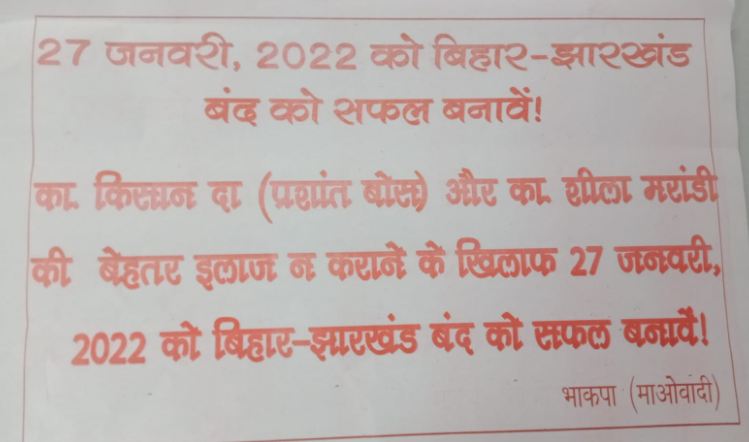 27 जनवरी, 2022 को बिहार-झारखंड
बंद को सफल बनावें!
का. किसान दा (प्रशांत बोस) और का. शीला मरांडी
की बेहतर इलाज न कराने के खिलाफ 27 जनवरी,
2022 को बिहार-झारखंड बंद को सफल बनावें!
भाकपा (माओवादी)